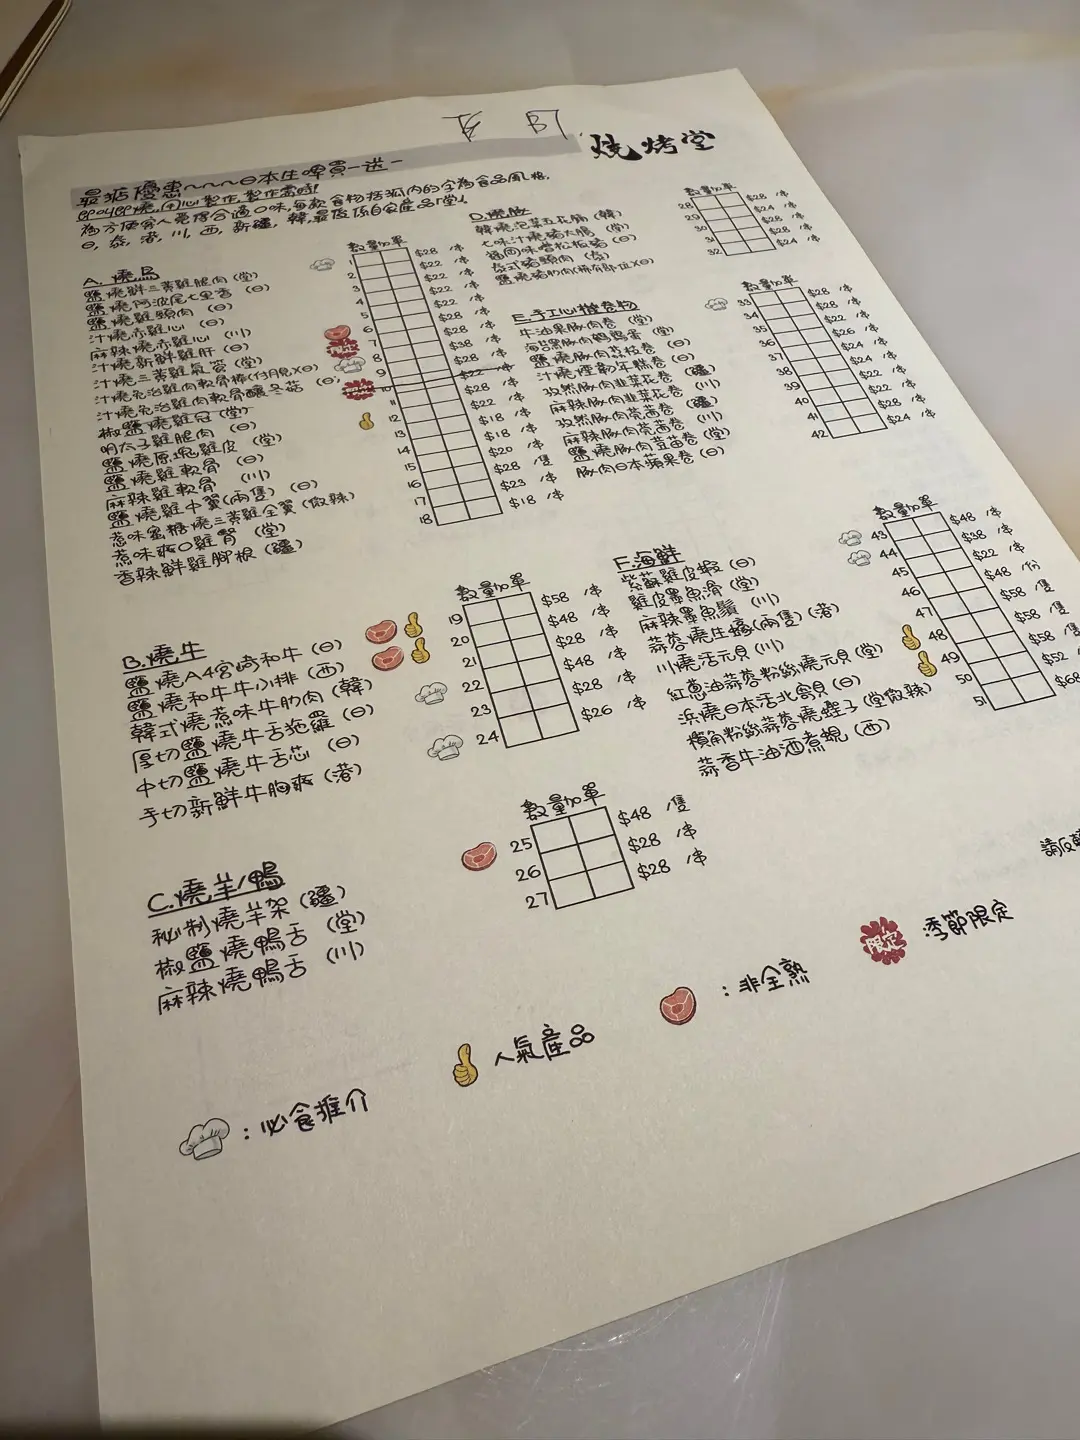 燒烤堂
最抵優惠~~~~日本生啤買一送一
即叫即燒,用心製作,製作需時!
為方便客人覓得合適口味,每款食物括弧內的字為食品風格,
日, 泰, 港, 川, 西, 新疆, 韓,最後係自家産品「堂」
A. 燒鳥
數量加單
鹽燒鮮三黃雞腿肉 (堂) 1 $28 /串
鹽燒阿波尾七里香 (日) 2 $22 /串
鹽燒雞頸肉 (日) 3 $22 /串
汁燒赤雞心 (日) 4 $22 /串
麻辣燒赤雞心 (川) 5 $22 /串
汁燒新鮮雞肝 (日) 6 $28 /串
汁燒三黃雞氣管 (堂) 7 $28 /串
汁燒免治雞肉軟骨棒(付月見)(日) 8 $38 /串
汁燒免治雞肉軟骨釀冬菇 (日) 9 $28 /串
椒鹽燒雞冠 (堂) 10 $22 /串
明太子雞腿肉 (日) 11 $28 /串
鹽燒原塊雞皮 (堂) 12 $22 /串
鹽燒雞軟骨 (日) 13 $18 /串
麻辣雞軟骨 (川) 14 $18 /串
鹽燒雞中翼(兩隻) (日) 15 $20 /串
惹味蜜糖燒三黃雞全翼 (微辣) 16 $28 /隻
惹味爽口雞腎 (堂) 17 $23 /串
香辣鮮雞腳根 (疆) 18 $18 /串
B.燒牛
數量加單
鹽燒A4宮崎和牛 (日) 19 $58 /串
鹽燒和牛牛小排 (西) 20 $48 /串
韓式燒惹味牛肋肉 (韓) 21 $28 /串
厚切鹽燒牛舌拖羅 (日) 22 $48 /串
中切鹽燒牛舌芯 (日) 23 $28 /串
手切新鮮牛胸爽 (港) 24 $26 /串
C.燒羊/鴨
數量加單
秘制燒羊架 (疆) 25 $48 /隻
椒鹽燒鴨舌 (堂) 26 $28 /串
麻辣燒鴨舌 (川) 27 $28 /串
D.燒豚
數量加單
韓燒泡菜五花腩 (韓) 28 $28 /串
七味汁燒豬大腸 (堂) 29 $24 /串
福岡味噌松板豬 (日) 30 $28 /串
泰式豬頸肉 (泰) 31 $28 /串
鹽燒豬肋肉(稀有部位)(日) 32 $24 /串
E.手工心機卷物
數量加單
牛油果豚肉卷 (堂) 33 $28 /串
海苔黑豚肉鵪鶉蛋 (堂) 34 $28 /串
鹽燒豚肉荔枝卷 (日) 35 $22 /串
汁燒煙韌年糕卷 (日) 36 $26 /串
孜然豚肉韭菜花卷 (疆) 37 $24 /串
麻辣豚肉韭菜花卷 (川) 38 $24 /串
孜然豚肉莞茜卷 (疆) 39 $22 /串
麻辣豚肉莞茜卷 (川) 40 $22 /串
鹽燒豚肉豆苗卷 (堂) 41 $28 /串
豚肉日本蘋果卷 (日) 42 $24 /串
F.海鮮
數量加單
紫蘇雞皮蝦 (日) 43 $48 /串
雞皮墨魚滑 (堂) 44 $38 /串
麻辣墨魚鬚 (川) 45 $22 /串
蒜蓉燒生蠔(兩隻) (港) 46 $48 /份
川燒活元貝 (川) 47 $58 /隻
紅蔥油蒜蓉粉絲燒元貝 (堂) 48 $58 /隻
浜燒日本活北寄貝 (日) 49 $58 /隻
欖角粉絲蒜蓉燒蟶子 (堂微辣) 50 $52
蒜香牛油酒煮蜆 (西) 51 $68
請反
限定 季節限定
: 非全熟
人氣産品
: 必食推介